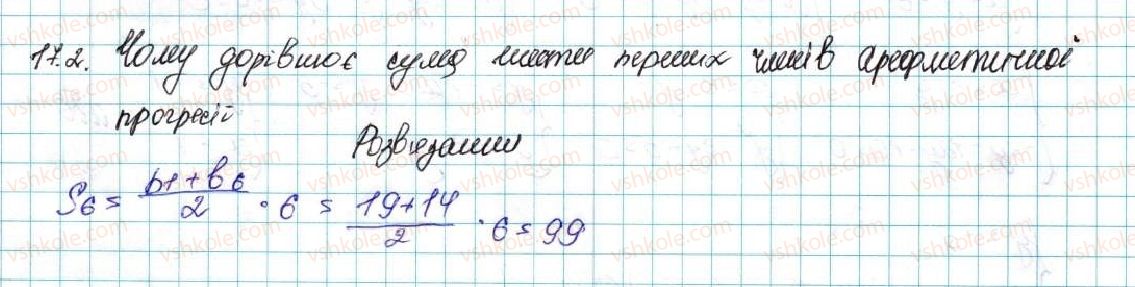 17.2. Чому дорівнює сума шести перших членів арифметичної
прогресії
Розв'язання
S6 = b1 + b6 / 2 · 6 = 19+14 / 2 · 6 = 99